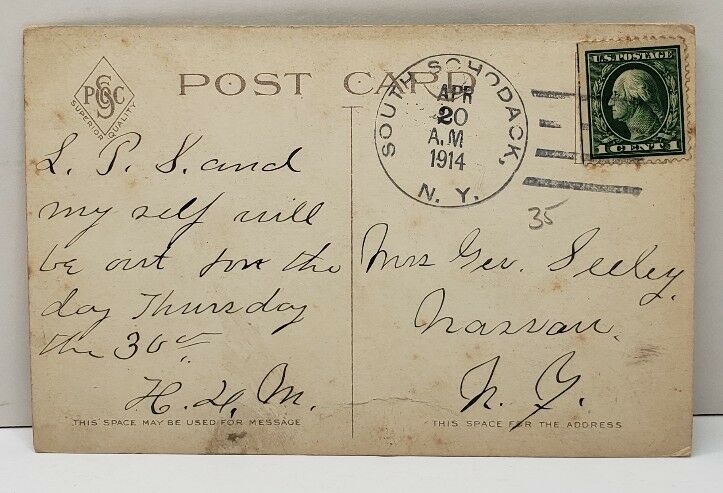 PSC
SUPERIOR QUALITY
POST CARD
SOUTH SCHODACK,
APR
20
A.M
1914
N. Y.
U.S. POSTAGE
1 CENT 1
35
L. P. S. and
my self will
be out for the
day Thursday
the 30th
H. H. M.
Mrs Geo. Seeley.
Nassau.
N. Y.
THIS SPACE MAY BE USED FOR MESSAGE
THIS SPACE FOR THE ADDRESS